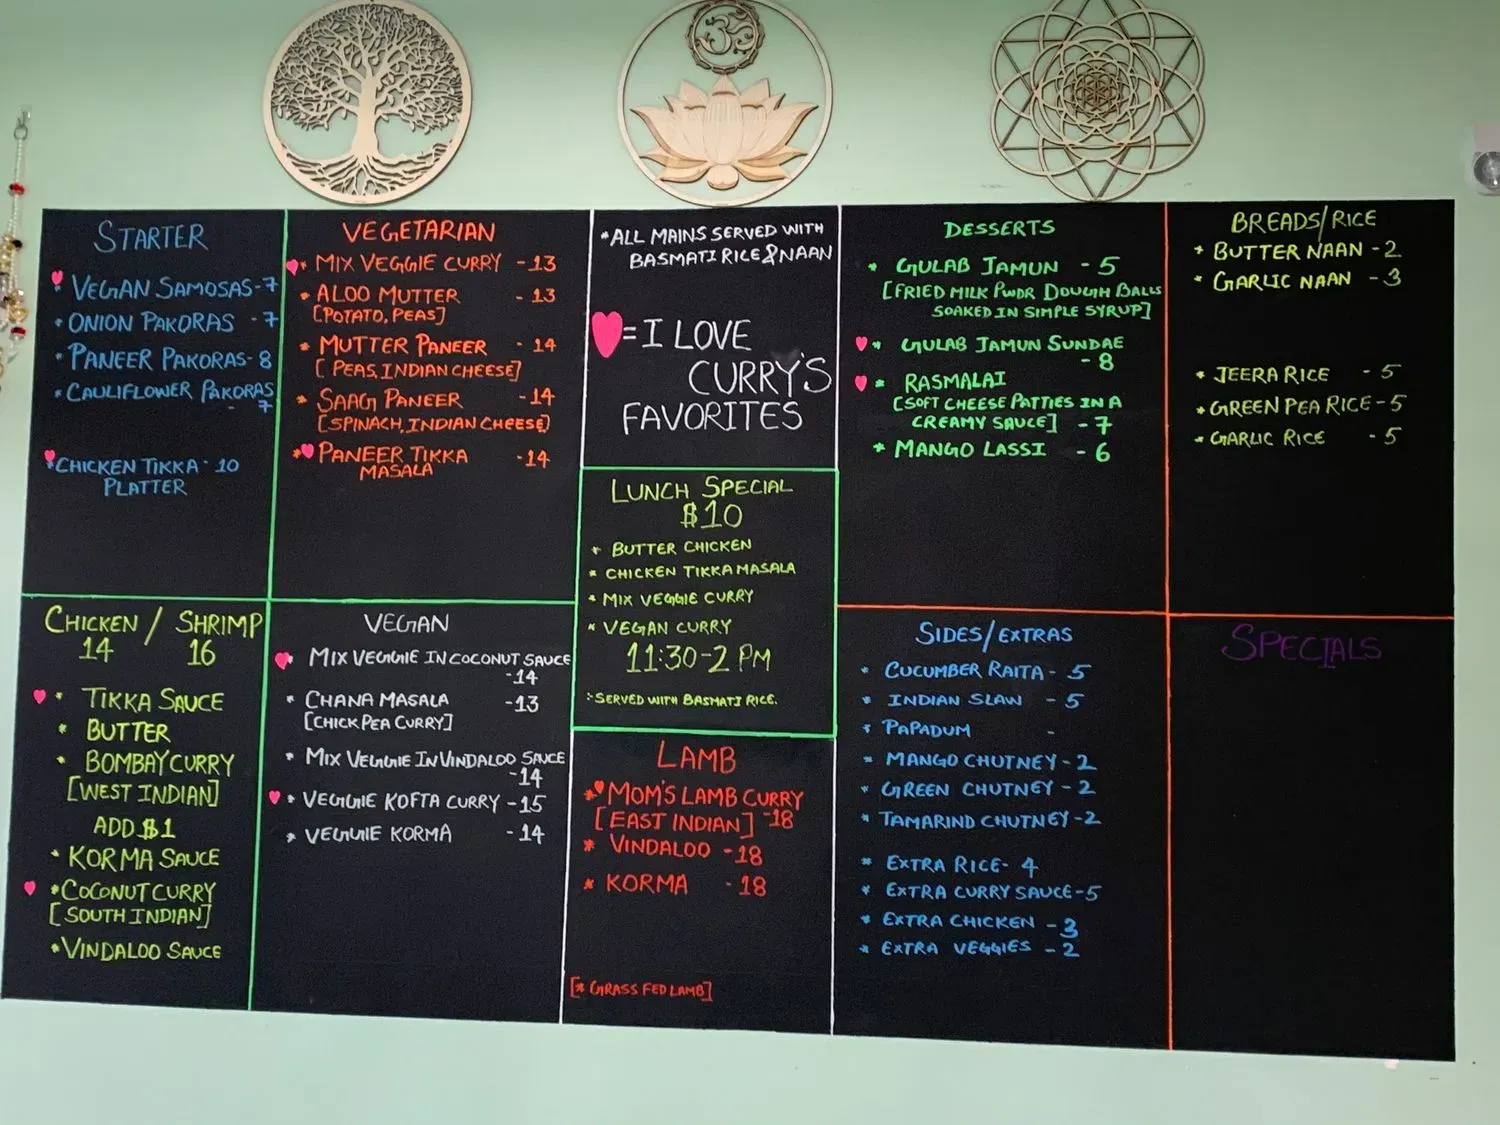 STARTER
* VEGAN SAMOSAS - 7
* ONION PAKORAS - 7
* PANEER PAKORAS - 8
* CAULIFLOWER PAKORAS
- 7
* CHICKEN TIKKA - 10
PLATTER
VEGETARIAN
* MIX VEGGIE CURRY - 13
* ALOO MUTTER - 13
[POTATO, PEAS]
* MUTTER PANEER - 14
[PEAS, INDIAN CHEESE]
* SAAG PANEER - 14
[SPINACH, INDIAN CHEESE]
* PANEER TIKKA - 14
MASALA
* ALL MAINS SERVED WITH
BASMATI RICE & NAAN
= I LOVE
CURRY'S
FAVORITES
LUNCH SPECIAL
$10
* BUTTER CHICKEN
* CHICKEN TIKKA MASALA
* MIX VEGGIE CURRY
* VEGAN CURRY
11:30-2 PM
SERVED WITH BASMATI RICE.
DESSERTS
* GULAB JAMUN - 5
[FRIED MILK PWDR DOUGH BALLS
SOAKED IN SIMPLE SYRUP]
* GULAB JAMUN SUNDAE
- 8
* RASMALAI
[SOFT CHEESE PATTIES IN A
CREAMY SAUCE] - 7
* MANGO LASSI - 6
BREADS/RICE
* BUTTER NAAN - 2
* GARLIC NAAN - 3
* JEERA RICE - 5
* GREEN PEA RICE - 5
* GARLIC RICE - 5
CHICKEN / SHRIMP
14 16
* TIKKA SAUCE
* BUTTER
* BOMBAY CURRY
[WEST INDIAN]
ADD $1
* KORMA SAUCE
* COCONUT CURRY
[SOUTH INDIAN]
* VINDALOO SAUCE
VEGAN
* MIX VEGGIE IN COCONUT SAUCE
- 14
* CHANA MASALA - 13
[CHICK PEA CURRY]
* MIX VEGGIE IN VINDALOO SAUCE
- 14
* VEGGIE KOFTA CURRY - 15
* VEGGIE KORMA - 14
LAMB
* MOM'S LAMB CURRY
[EAST INDIAN] - 18
* VINDALOO - 18
* KORMA - 18
[* GRASS FED LAMB]
SIDES/EXTRAS
* CUCUMBER RAITA - 5
* INDIAN SLAW - 5
* PAPADUM -
* MANGO CHUTNEY - 2
* GREEN CHUTNEY - 2
* TAMARIND CHUTNEY - 2
* EXTRA RICE - 4
* EXTRA CURRY SAUCE - 5
* EXTRA CHICKEN - 3
* EXTRA VEGGIES - 2
SPECIALS